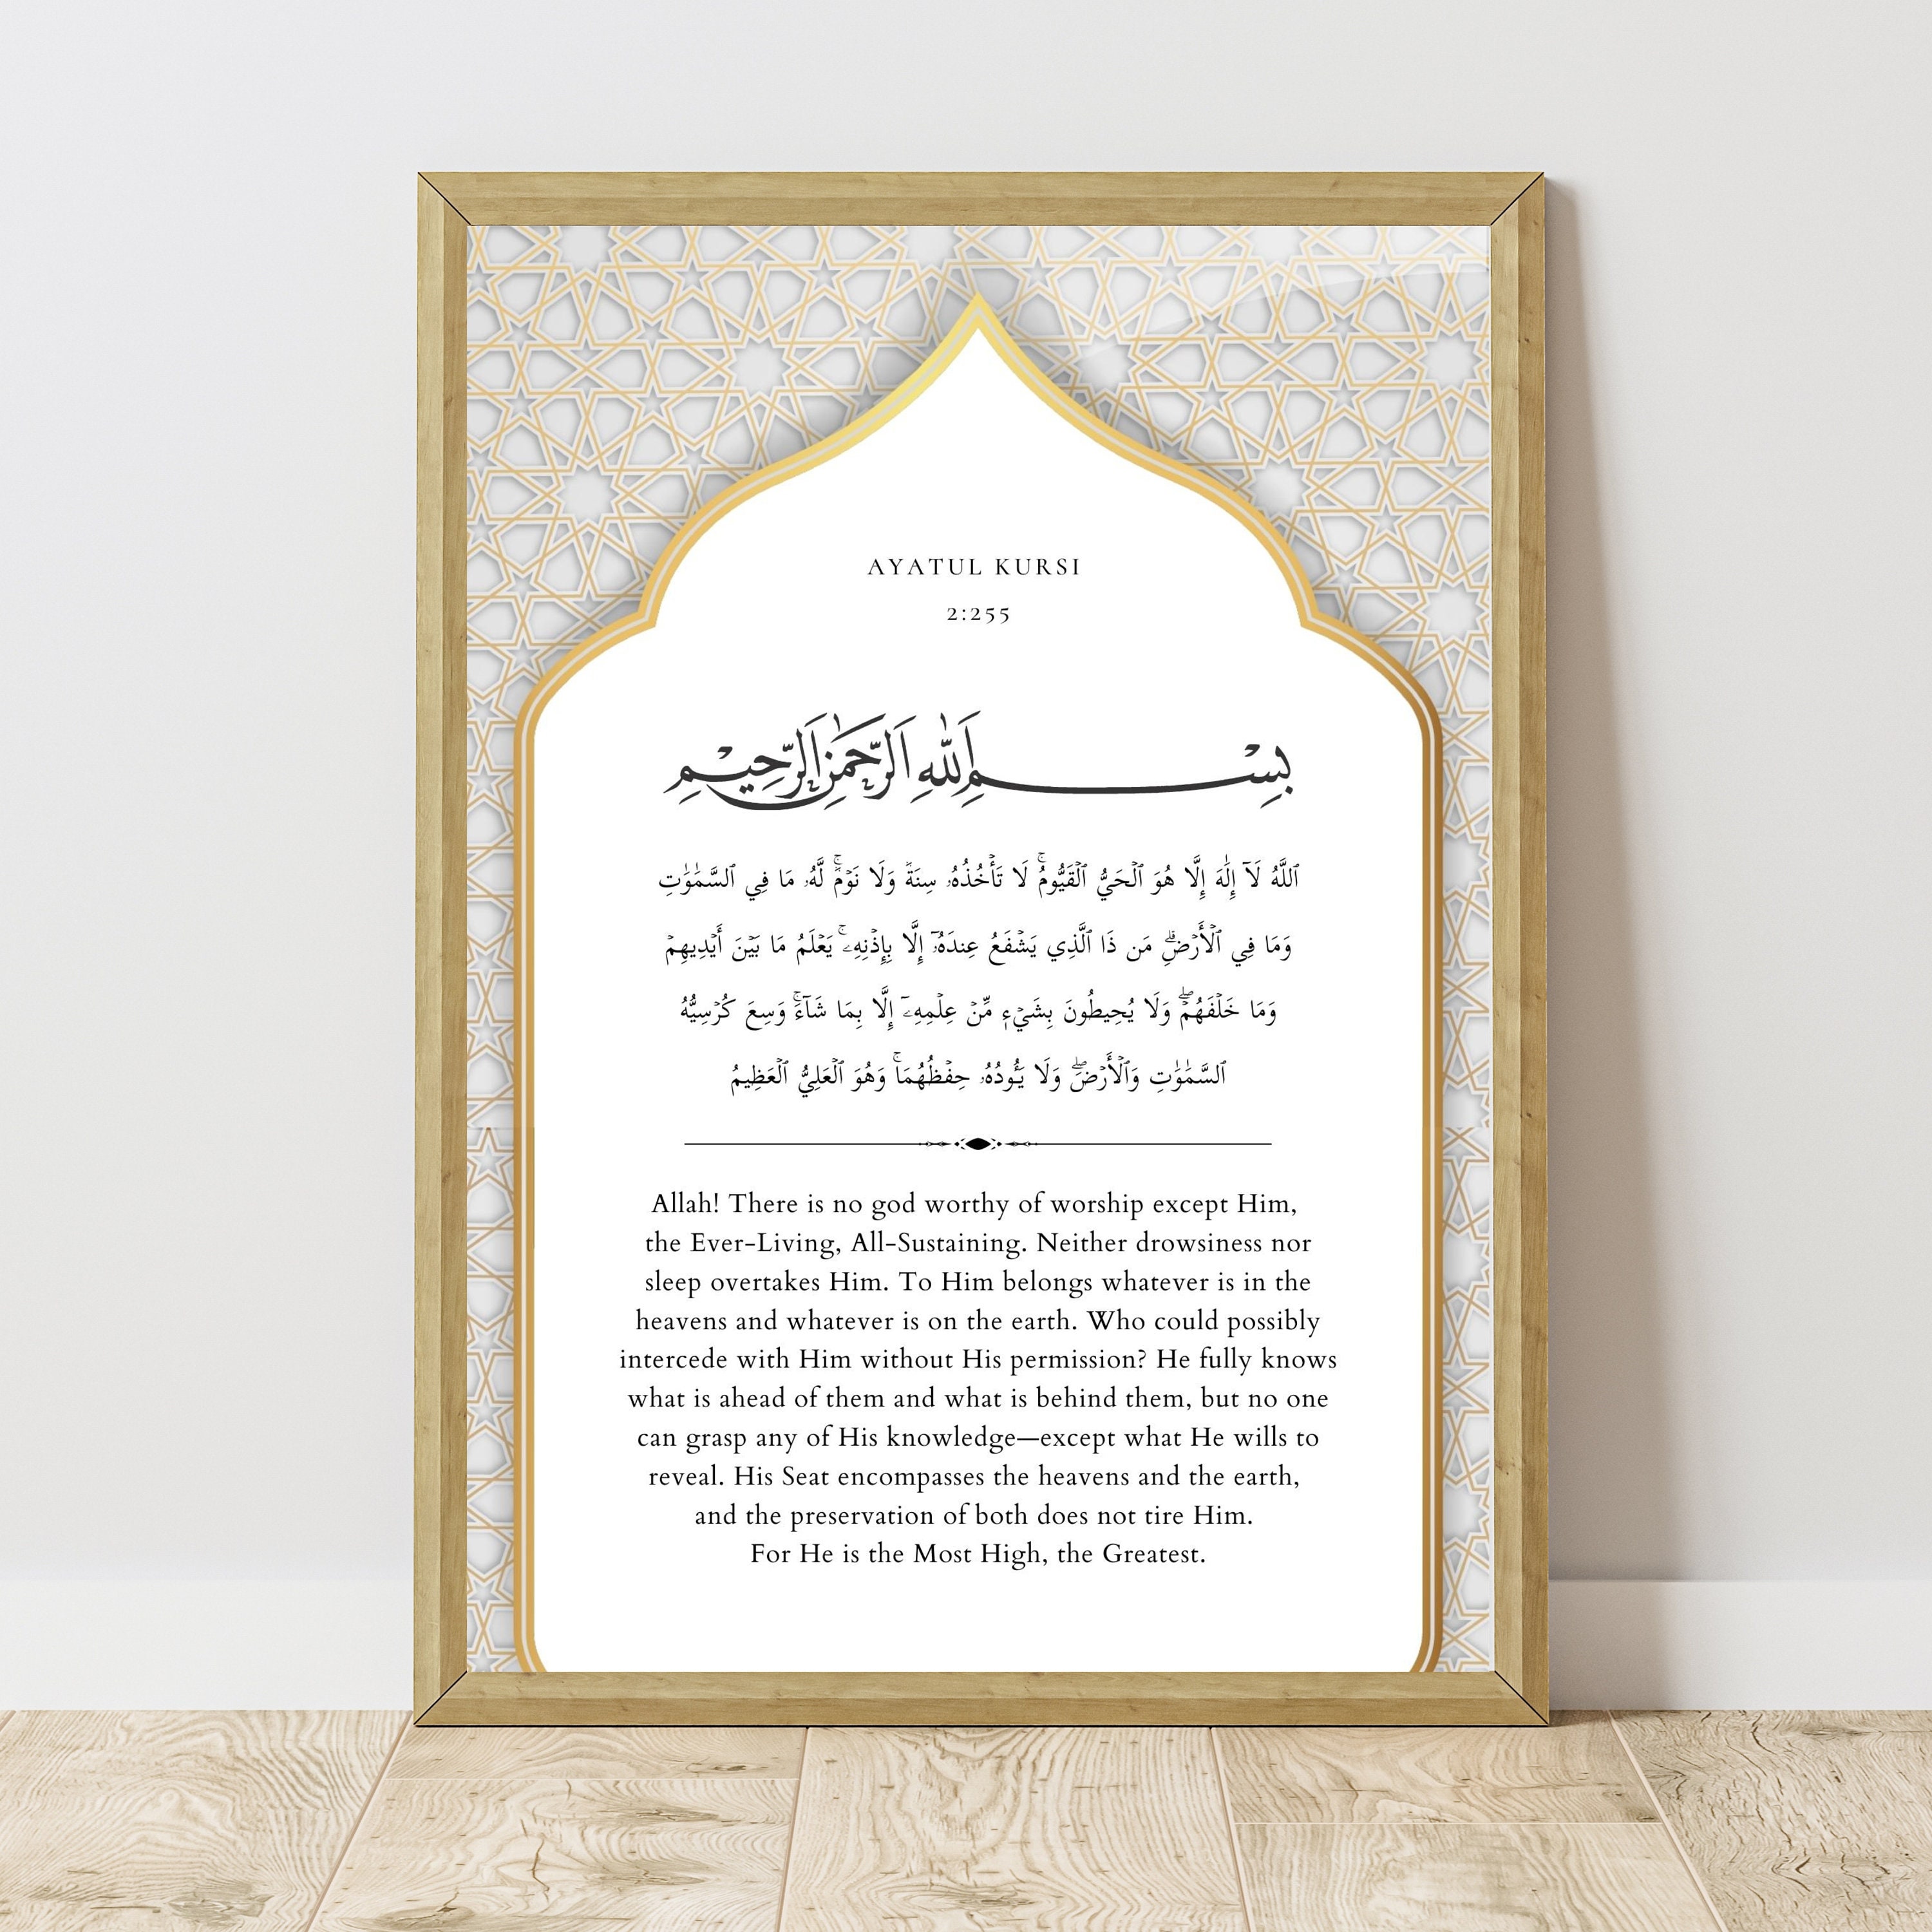 AYATUL KURSI
2:255
بِسْمِ اللَّهِ الرَّحْمَٰنِ الرَّحِيمِ
ٱللَّهُ لَآ إِلَٰهَ إِلَّا هُوَ ٱلۡحَيُّ ٱلۡقَيُّومُۚ لَا تَأۡخُذُهُۥ سِنَةٞ وَلَا نَوۡمٞۚ لَّهُۥ مَا فِي ٱلسَّمَٰوَٰتِ
وَمَا فِي ٱلۡأَرۡضِۗ مَن ذَا ٱلَّذِي يَشۡفَعُ عِندَهُۥٓ إِلَّا بِإِذۡنِهِۦۚ يَعۡلَمُ مَا بَيۡنَ أَيۡدِيهِمۡ
وَمَا خَلۡفَهُمۡۖ وَلَا يُحِيطُونَ بِشَيۡءٖ مِّنۡ عِلۡمِهِۦٓ إِلَّا بِمَا شَآءَۚ وَسِعَ كُرۡسِيُّهُ
ٱلسَّمَٰوَٰتِ وَٱلۡأَرۡضَۖ وَلَا يَـُٔودُهُۥ حِفۡظُهُمَاۚ وَهُوَ ٱلۡعَلِيُّ ٱلۡعَظِيمُ
Allah! There is no god worthy of worship except Him,
the Ever-Living, All-Sustaining. Neither drowsiness nor
sleep overtakes Him. To Him belongs whatever is in the
heavens and whatever is on the earth. Who could possibly
intercede with Him without His permission? He fully knows
what is ahead of them and what is behind them, but no one
can grasp any of His knowledge—except what He wills to
reveal. His Seat encompasses the heavens and the earth,
and the preservation of both does not tire Him.
For He is the Most High, the Greatest.